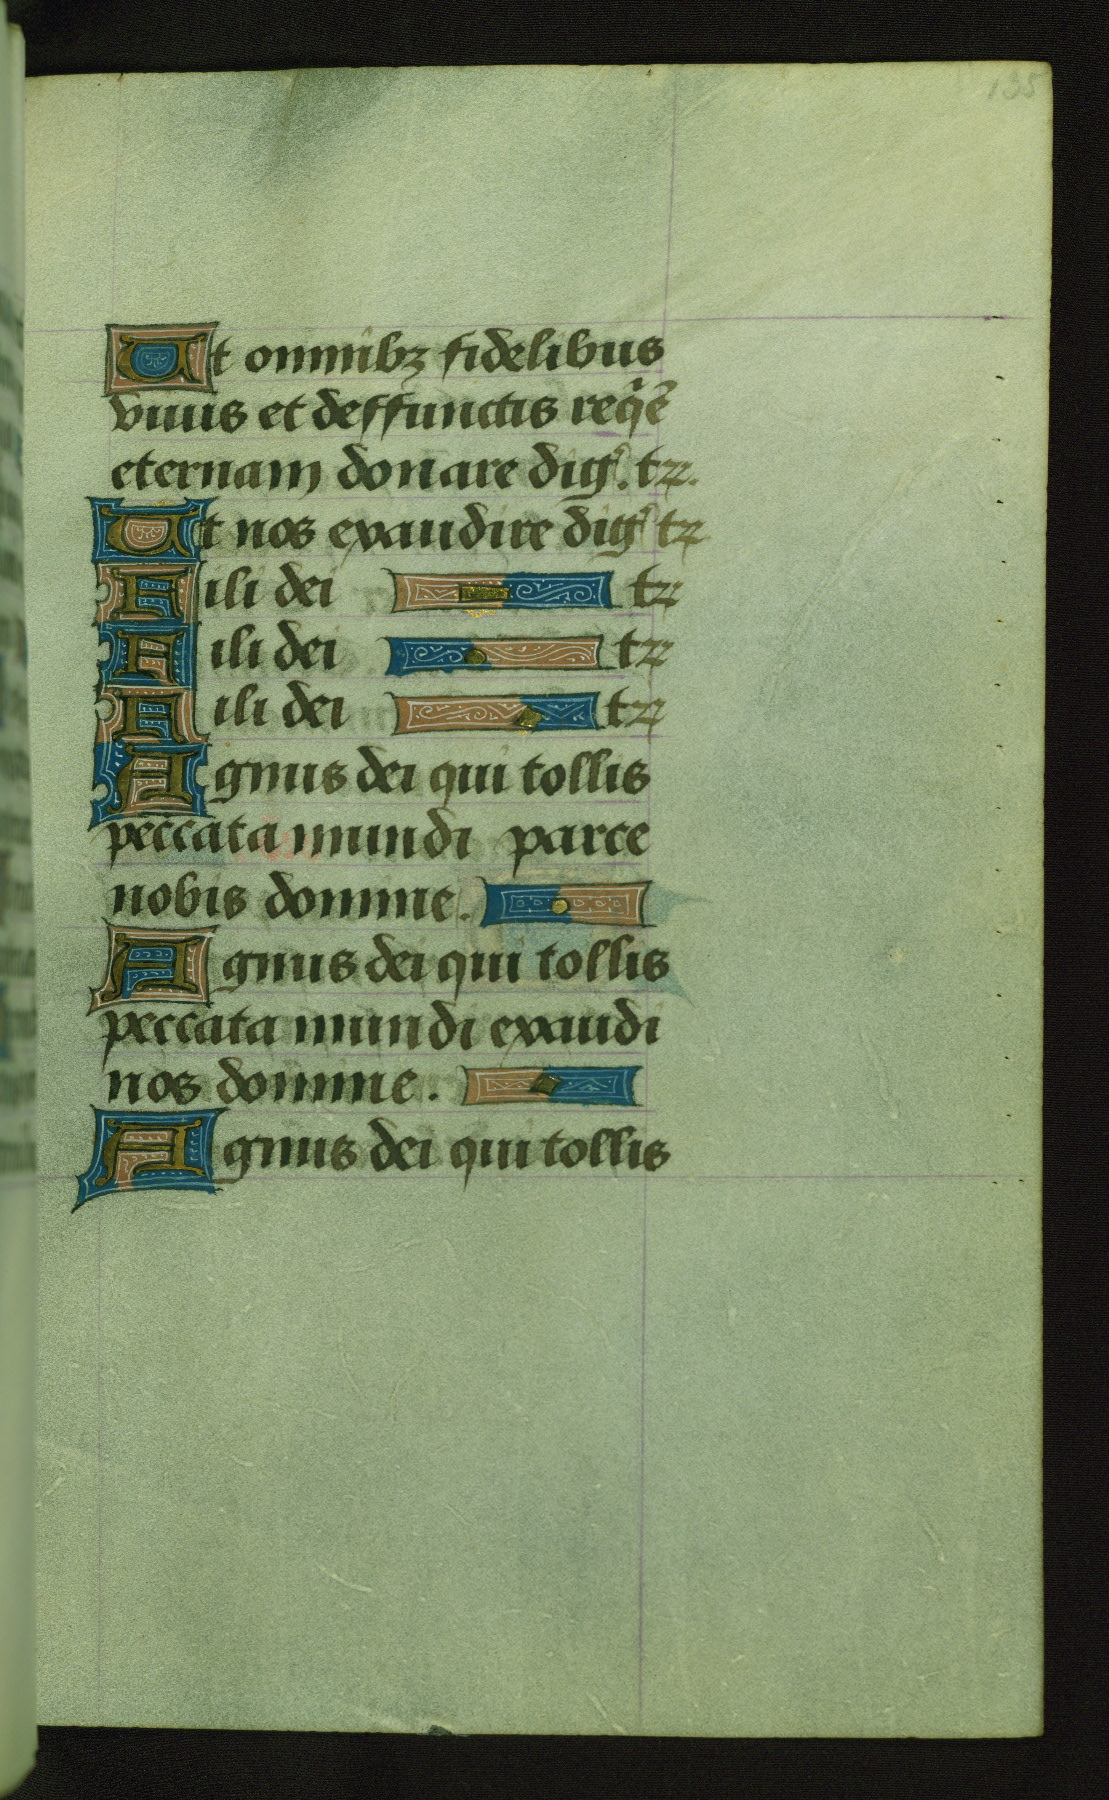 135
Ut omnibꝫ fidelibus
viuis et deffunctis reqⁱẽ
eternam donare digⁱ. tꝛꝛ.
Ut nos exaudire digⁱ tꝛꝛ
Fili dei tꝛꝛ
Fili dei tꝛꝛ
Fili dei tꝛꝛ
Agnus dei qui tollis
peccata mundi parce
nobis domine.
Agnus dei qui tollis
peccata mundi exaudi
nos domine.
Agnus dei qui tollis